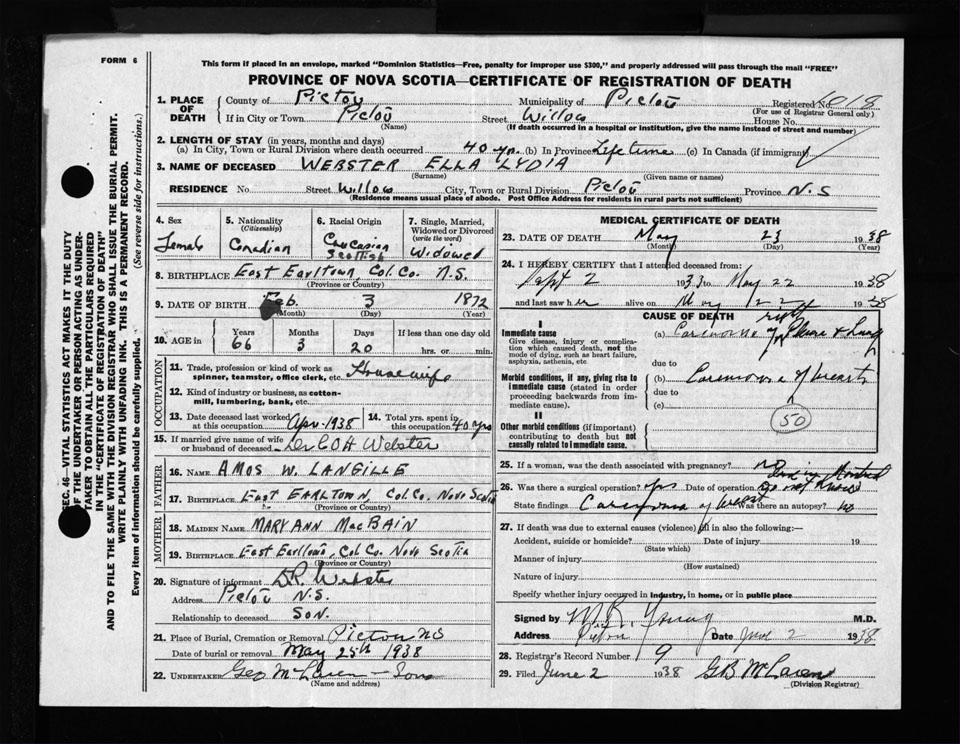 FORM 6
This form if placed in an envelope, marked "Dominion Statistics—Free, penalty for improper use $300," and properly addressed will pass through the mail "FREE"
PROVINCE OF NOVA SCOTIA—CERTIFICATE OF REGISTRATION OF DEATH
SEC. 46—VITAL STATISTICS ACT MAKES IT THE DUTY
OF THE UNDERTAKER OR PERSON ACTING AS UNDER-
TAKER TO OBTAIN ALL THE PARTICULARS REQUIRED
IN THE "CERTIFICATE OF REGISTRATION OF DEATH"
AND TO FILE THE SAME WITH THE DIVISION REGISTRAR WHO SHALL ISSUE THE BURIAL PERMIT.
WRITE PLAINLY WITH UNFADING INK. THIS IS A PERMANENT RECORD.
Every item of information should be carefully supplied. (See reverse side for instructions.)
1. PLACE OF DEATH
County of Pictou Municipality of Pictou Registered No. 1018
(For use of Registrar General only)
If in City or Town Pictou Street Willow House No.
(Name) (If death occurred in a hospital or institution, give the name instead of street and number)
2. LENGTH OF STAY (in years, months and days)
(a) In City, Town or Rural Division where death occurred 40 yrs. (b) In Province Life time (c) In Canada (if immigrant)
3. NAME OF DECEASED WEBSTER ELLA LYDIA
(Surname) (Given name or names)
RESIDENCE No. Street Willow City, Town or Rural Division Pictou Province N.S
(Residence means usual place of abode. Post Office Address for residents in rural parts not sufficient)
4. Sex Female
5. Nationality (Citizenship) Canadian
6. Racial Origin Caucasian Scottish
7. Single, Married, Widowed or Divorced (write the word) Widowed
8. BIRTHPLACE East Earltown Col. Co. N.S.
(Province or Country)
9. DATE OF BIRTH Feb. 3 1872
(Month) (Day) (Year)
10. AGE in Years 66 Months 3 Days 20 If less than one day old hrs. or min.
OCCUPATION
11. Trade, profession or kind of work as spinner, teamster, office clerk, etc. Housewife
12. Kind of industry or business, as cotton-mill, lumbering, bank, etc.
13. Date deceased last worked at this occupation Apr. 1938
14. Total yrs. spent in this occupation 40 yrs
15. If married give name of wife or husband of deceased Dr C O H Webster
FATHER
16. NAME AMOS W. LANGILLE
17. BIRTHPLACE EAST EARLTOWN, Col. Co. Nova Scotia
(Province or Country)
MOTHER
18. MAIDEN NAME MARY ANN MacBAIN
19. BIRTHPLACE East Earltown, Col Co. Nova Scotia
(Province or Country)
20. Signature of informant D.R. Webster
Address Pictou N.S.
Relationship to deceased SON.
21. Place of Burial, Cremation or Removal Pictou NS
Date of burial or removal May 25th 1938
22. UNDERTAKER Geo McLaren – Sons
(Name and address)
MEDICAL CERTIFICATE OF DEATH
23. DATE OF DEATH May 23 1938
(Month) (Day) (Year)
24. I HEREBY CERTIFY that I attended deceased from:
Sept 2 1933 to May 22 1938
and last saw her alive on May 22 1938
CAUSE OF DEATH
I
Immediate cause
Give disease, injury or complication which caused death, not the mode of dying, such as heart failure, asphyxia, asthenia, etc.
(a) Carcinoma of right Pleura & Lung
due to
Morbid conditions, if any, giving rise to immediate cause (stated in order proceeding backwards from immediate cause).
(b) Carcinoma of breast
due to
(c)
50
II
Other morbid conditions (if important) contributing to death but not causally related to immediate cause.
25. If a woman, was the death associated with pregnancy? no
26. Was there a surgical operation? yes Date of operation do not know
State findings Carcinoma of breast Was there an autopsy? no
27. If death was due to external causes (violence) fill in also the following:—
Accident, suicide or homicide? Date of injury 19
(State which)
Manner of injury
(How sustained)
Nature of injury
Specify whether injury occurred in industry, in home, or in public place
Signed by Young M.D.
Address Pictou Date June 2 1938
28. Registrar's Record Number 9
29. Filed June 2 1938 GB McLaren
(Division Registrar)